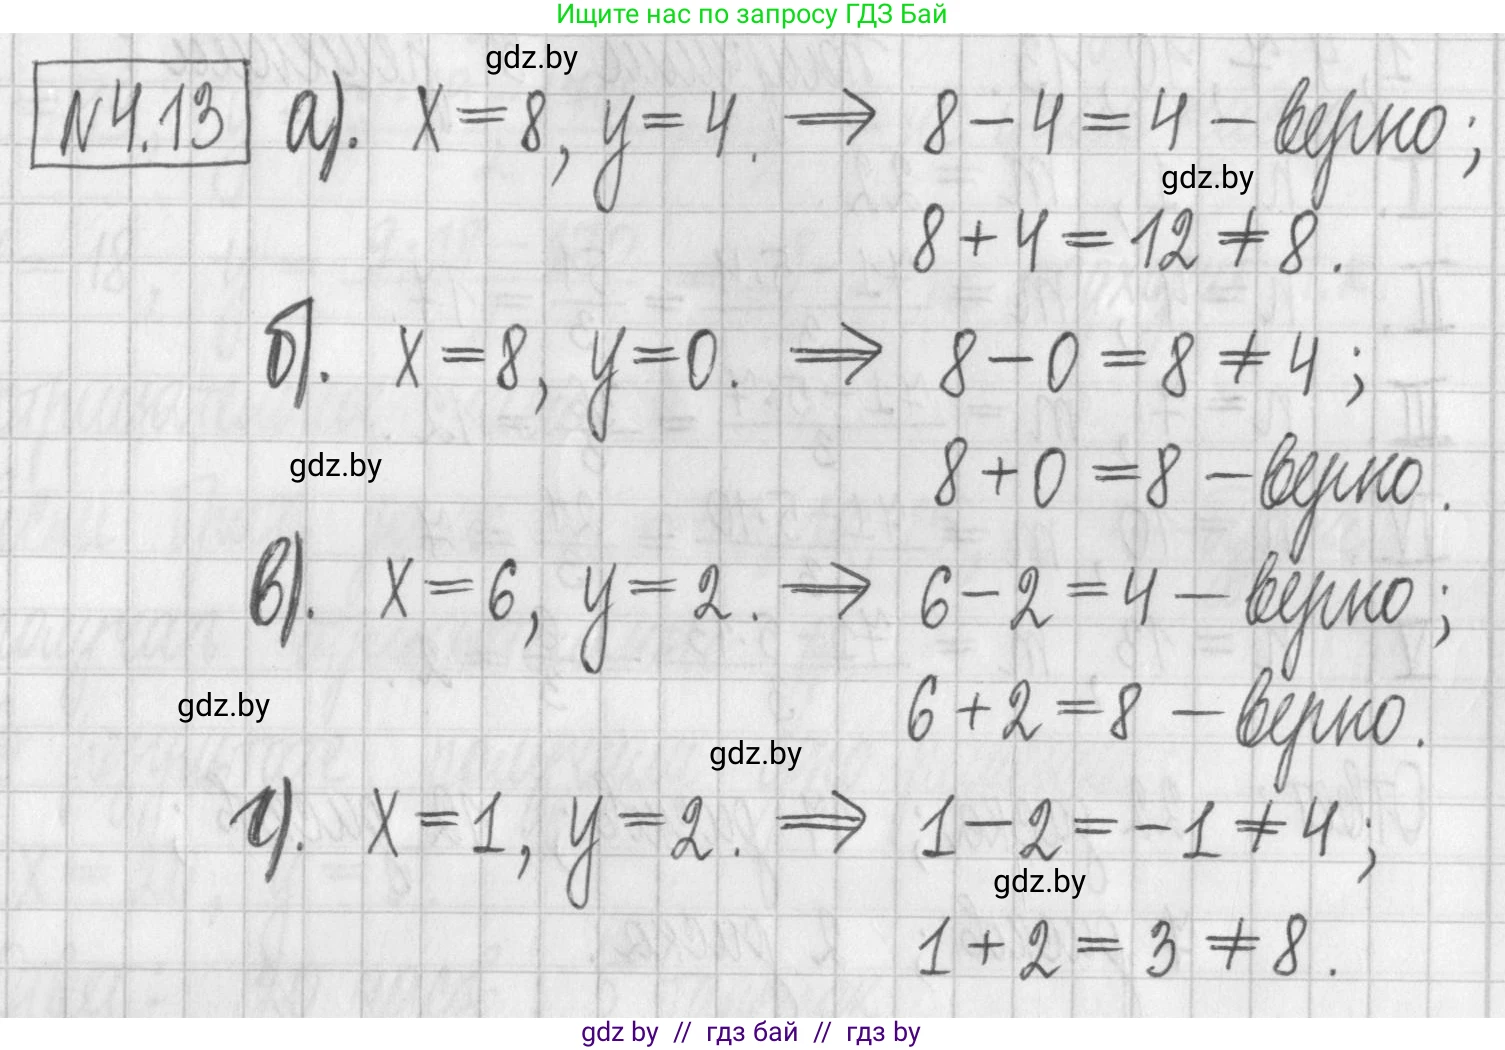 Ищите нас по запросу ГДЗ Бай
gdz.by
№4.13 а). x=8, y=4. ⇒ 8-4=4 - верно;
gdz.by
8+4=12≠8.
б). x=8, y=0. ⇒ 8-0=8≠4;
gdz.by
8+0=8 - верно.
в). x=6, y=2. ⇒ 6-2=4 - верно;
gdz.by
6+2=8 - верно.
gdz.by
г). x=1, y=2. ⇒ 1-2=-1≠4;
gdz.by
1+2=3≠8.
gdz by // гдз бай // гдз by